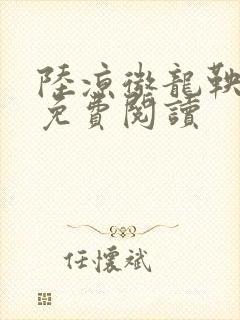 陸涼徹龍鞅
免費閱讀
任懷斌